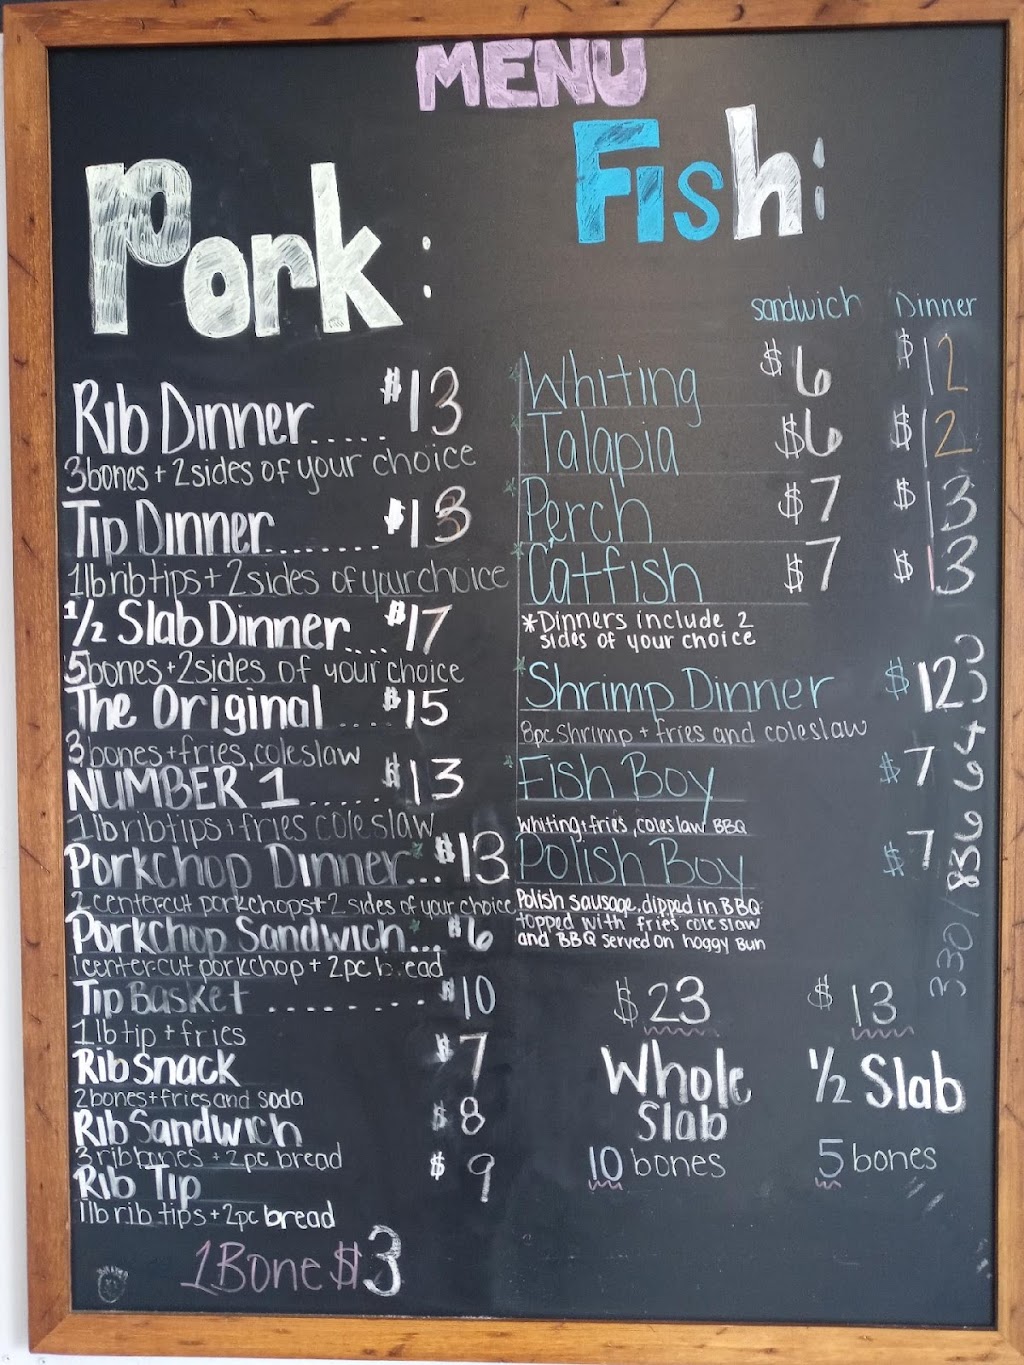 MENU
Pork:
Rib Dinner..... $13
3bones + 2 sides of your choice
Tip Dinner........ $13
1lb rib tips + 2 sides of your choice
1/2 Slab Dinner.... $17
5bones + 2 sides of your choice
The Original .... $15
3 bones + fries, coleslaw
NUMBER 1...... $13
1lb rib tips + fries coleslaw
Porkchop Dinner... $13
2 center-cut porkchops + 2 sides of your choice
Porkchop Sandwich... $6
1 center-cut porkchop + 2pc bread
Tip Basket ........ $10
1lb tip + fries
Rib Snack $7
2bones + fries and soda
Rib Sandwich $8
3 rib bones + 2pc bread
Rib Tip $9
1lb rib tips + 2pc bread
1 Bone $3
Fish:
sandwich Dinner
Whiting $6 $12
Talapia $6 $12
Perch $7 $13
Catfish $7 $13
*Dinners include 2
sides of your choice
Shrimp Dinner $12
8pc shrimp + fries and coleslaw
Fish Boy $7
Whiting + fries, coleslaw BBQ
Polish Boy $7
Polish sausage, dipped in BBQ
topped with fries coleslaw
and BBQ served on hoggy Bun
$23 $13
Whole 1/2 Slab
Slab
10 bones 5 bones